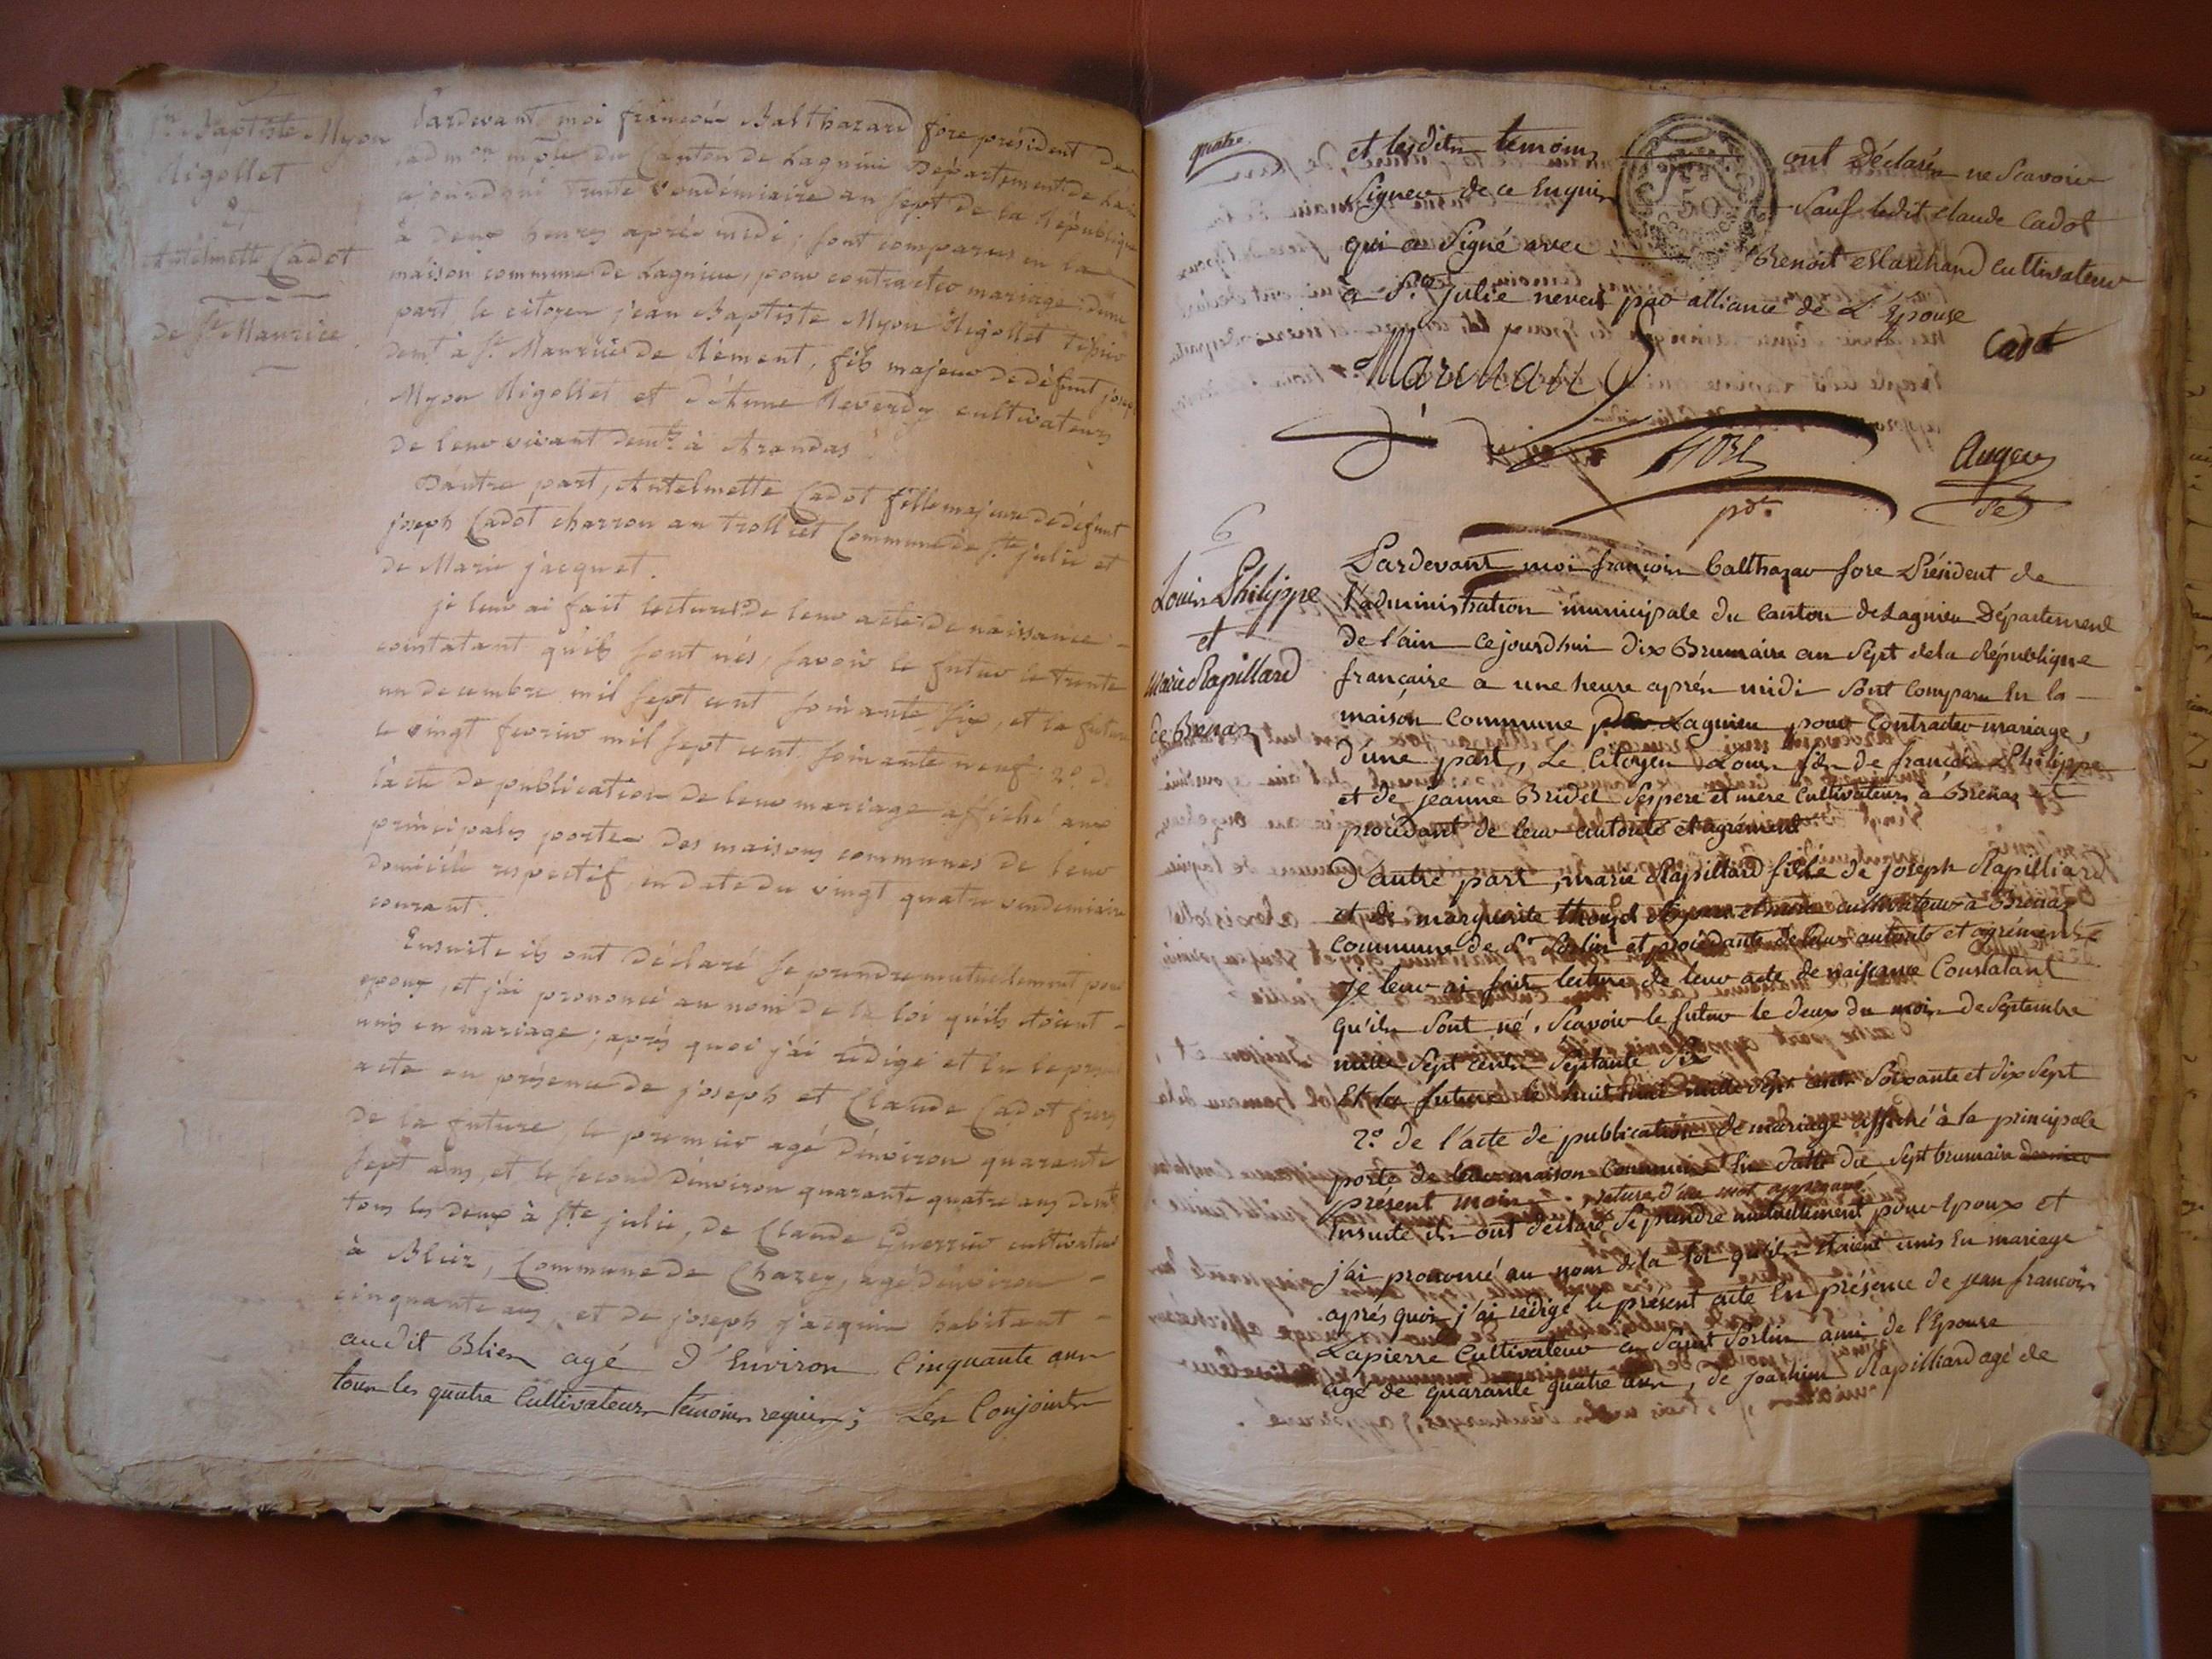 Jn Baptiste Myon
Rigollet
&
Antelmette Cadot
de St Maurice
Pardevant moi françois Balthazard fore président de
ladmon mple du Canton de Lagnieu Département de Lain
ajourdhui trente vendémiaire an sept de la République
à deux heures après midi, sont comparus en la
maison commune de Lagnieu, pour contracter mariage; dune
part le citoyen jean Baptiste Myon Rigollet
demt à St Maurice de Rément, fils majeur de défunt joseph
Myon Rigollet et détienne Reverdy cultivateurs
de leur vivant demts à Arandas
Dautre part, Antelmette Cadot fille majeure de défunt
joseph Cadot charron au trolliet Commune de Ste julie et
de Marie jacquet.
je leur ai fait lecture 1o de leur acte de naissance
constatant quils sont nés, savoir le futur le trente
un decembre mil sept cent soixante six, et la future
le vingt fevrier mil sept cent soixante neuf; 2o de
lacte de publication de leur mariage affiché aux
principales portes des maisons communes de leur
domicile respectif, en date du vingt quatre vendemiaire
courant.
Ensuite ils ont déclaré se prendre mutuellement pour
epoux, et j'ai prononcé au nom de la loi quils étoient
unis en mariage; après quoi j'ai rédigé et lu le present
acte en présence de joseph et Claude Cadot freres
de la future, le premier agé denviron quarante
sept ans, et le second denviron quarante quatre ans demts
tous les deux à Ste julie, de Claude Guerrier cultivateur
à Blier, Commune de Chazey, agé denviron
cinquante ans, et de joseph jacquin habitant
audit Blien agé d'Environ Cinquante ans
tous les quatre Cultivateurs temoins requis; Les Conjoints
quatre
et lesdits temoins ont Déclarés ne Scavoir
Signer de ce Enquis Sauf ledit claude Cadot
qui a Signé avec Benoit Marchand Cultivateur
à Ste julie neveu par alliance de L'Epouse
50
Marchand
Cadot
fore
pdt
Auger
Se
6
Louis Philippe
et
Marie Rapillard
de Brenaz
Pardevant moi françois balthazar fore Président de
l'administration municipale du canton de Lagnieu Département
de l'ain cejourdhui dix Brumaire an Sept de la République
française a une heure après midi Sont Comparu En la
maison Commune Lagnieu pour Contracter mariage,
d'une part, Le Citoyen Louis fils de francois Philippe
et de jeanne Bridel Ses pere et mere Cultivateurs à Brenaz et
procédant de leur autorité et agrément
D'autre part, marie Rapillard fille de joseph Rapilliard
et de marguerite Ses pere et mere cultivateurs à Brenaz
Commune de St Sorlin et procédante de leur autorité et agrément
je leur ai fait lecture de leur acte de naissance Constatant
qu'ils Sont né, Scavoir le futur le deux du mois de Septembre
mille Sept cents Septante Six
Et la future le huit mai mille Sept cents Soixante et dix Sept
2o de l'acte de publication de mariage affiché à la principale
porte de leur maison Commune En datte du Sept brumaire dernier
présent mois. rature d'un mot approuvé
Ensuite ils ont déclaré Se prendre mutuellement pour Epoux et
j'ai prononcé au nom de la loi qu'ils étaient unis En mariage
après quoi j'ai redigé le présent acte En présence de jean francois
Lapierre Cultivateur a Saint Sorlin ami de l'Epouse
agé de quarante quatre ans, de joachim Rapilliard agé de